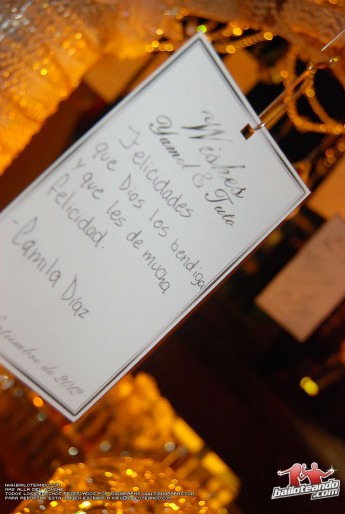 Wishes
Yamel & Tuto
Felicidades
que Dios los bendiga
y que les de mucha
felicidad.
-Camila Díaz
Setiembre de 2012
www.bailoteando.com
bailoteando.com